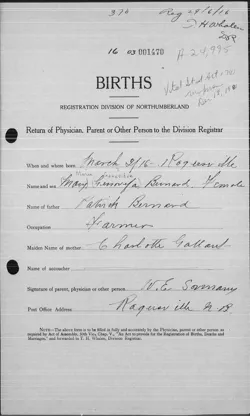 374 Reg
16 03 001470
A-24,995
BIRTHS
REGISTRATION DIVISION OF NORTHUMBERLAND
Return of Physician, Parent or Other Person to the Division Registrar
When and where born March 31/16 Rogersville
Name and sex Mary Bernard Female
Name of father Patrick Bernard
Occupation Farmer
Maiden Name of mother Charlotte Gallant
Name of accoucher
Signature of parent, physician or other person W. E. Sormany
Post Office Address Rogersville N B
NOTE:—The above form is to be filled in fully and accurately by the Physician, parent or other person as
required by Act of Assembly, 10th Vic., Chap. V., "An Act to provide for the Registration of Births, Deaths and
Marriages," and forwarded to T. H. Whalen, Division Registrar.